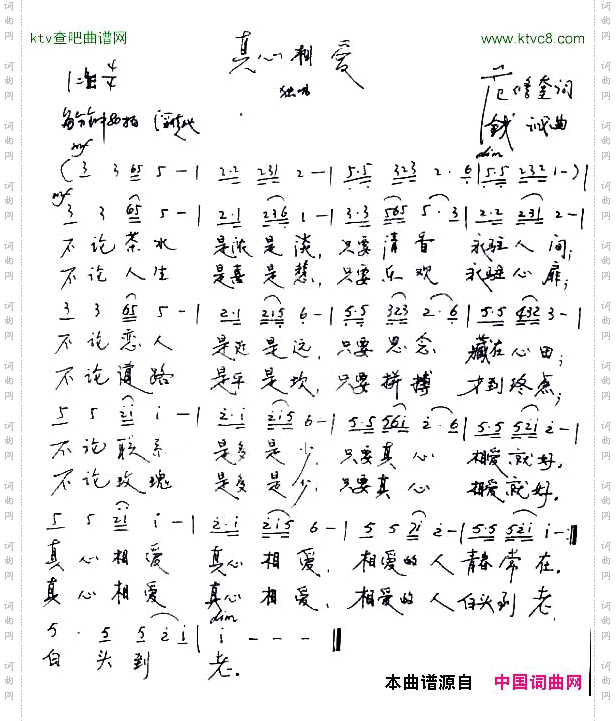 ktv查吧曲谱网
www.ktvc8.com
真心相爱
独唱
词曲
mf
dim
(3 3 65 5 - | 2·2 231 2 - | 5·5 323 2· 6 | 5·5 232 1 - ) |
mf
3 3 65 5 - | 2·1 236 1 - | 3·3 565 5·3 | 2·2 231 2 - |
不论茶水 是浓是淡, 只要清香 永驻人间;
不论人生 是喜是愁, 只要乐观 永驻心扉;
3 3 65 5 - | 2·1 215 6 - | 5·5 323 2·6 | 5·5 432 3 - |
不论恋人 是近是远, 只要思念 藏在心田;
不论道路 是平是坎, 只要拼搏 才到终点;
5 5 2i i - | 2·i 2i5 6 - | 5·5 56i 2·6 | 5·5 52i 2 - |
不论联系 是多是少, 只要真心 相爱就好.
不论玫瑰 是多是少, 只要真心 相爱就好.
5 5 2i i - | 2·i 2i5 6 - | 5 5 2i 2 - | 5·5 52i i - :||
真心相爱 真心相爱, 相爱的人青春常在.
真心相爱 真心相爱, 相爱的人白头到老.
dim
5 · 5 5 2 i | i - - - ||
白头到 老.
本曲谱源自 中国词曲网